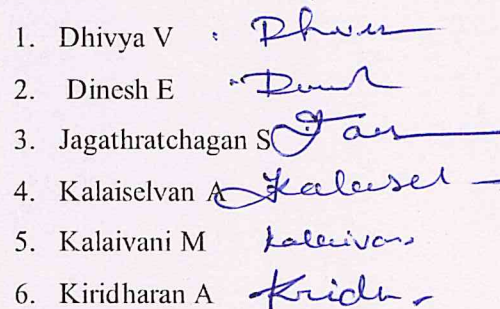 1. Dhivya V
2. Dinesh E
3. Jagathratchagan S
4. Kalaiselvan A Kalaisel
5. Kalaivani M Kalaivani
6. Kiridharan A